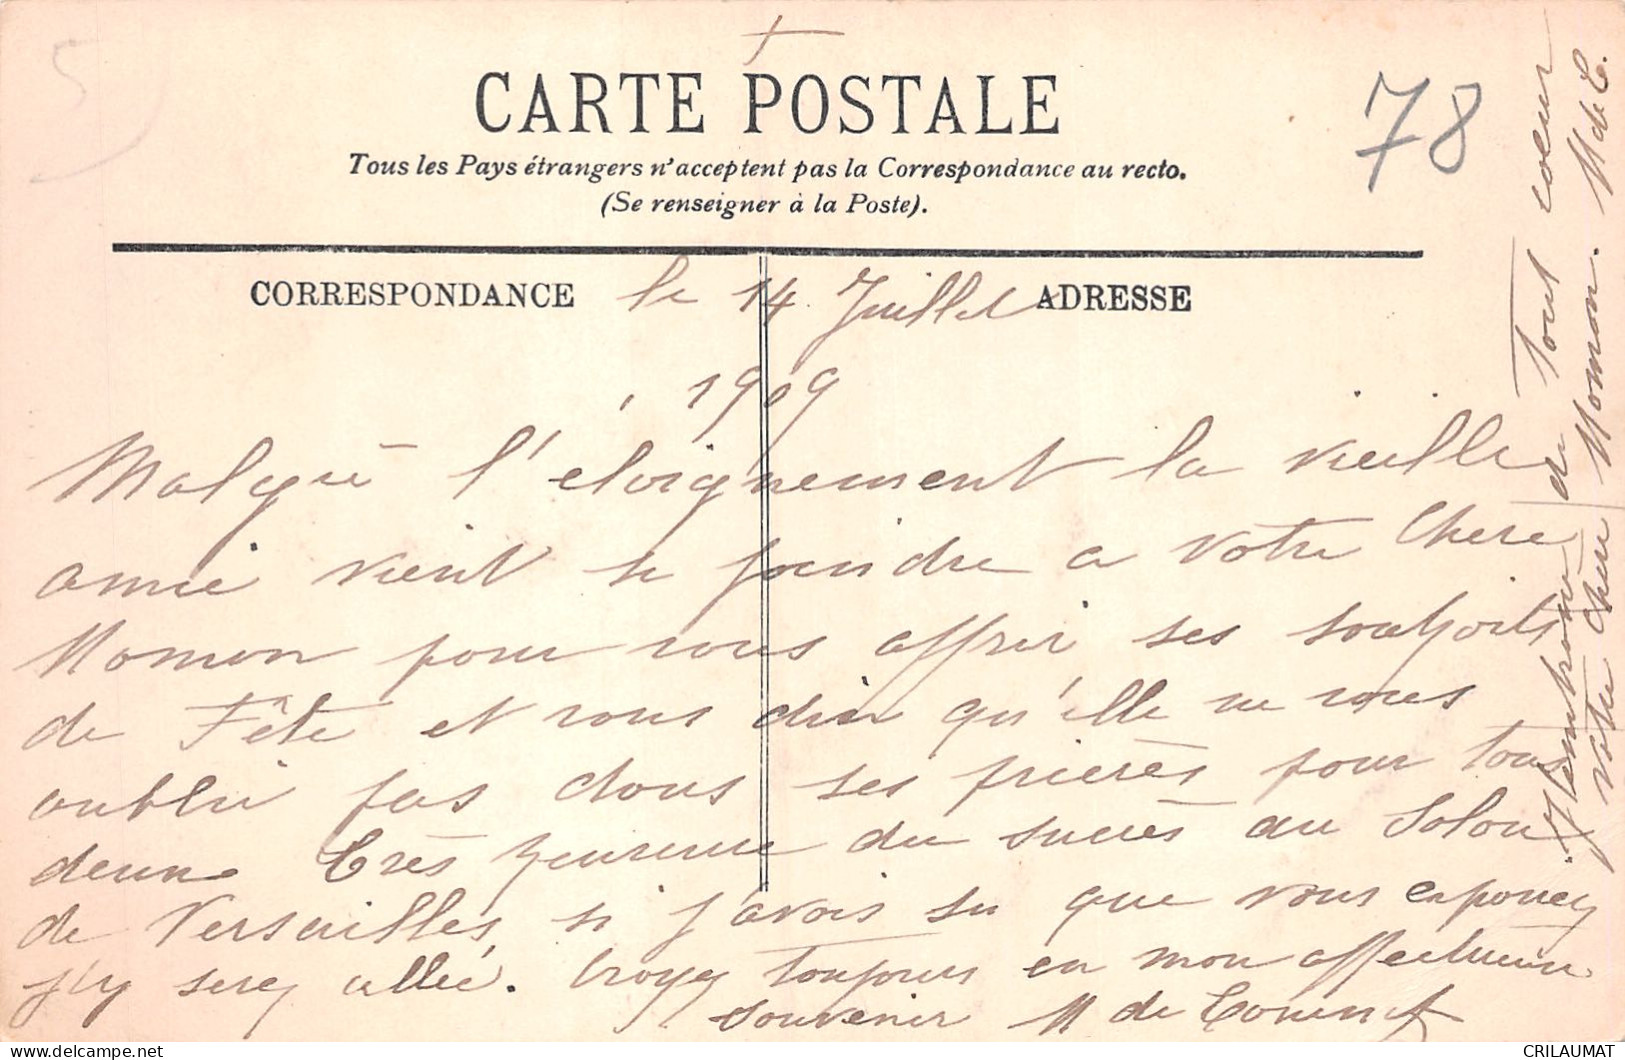 78
CARTE POSTALE
Tous les Pays étrangers n'acceptent pas la Correspondance au recto.
(Se renseigner à la Poste).
CORRESPONDANCE
ADRESSE
le 14 Juillet
1909
Malgré l'éloignement la vieille
amie vient se joindre a votre Chere
Maman pour vous offrir ses souhaits
de Fête et vous dire qu'elle ne vous
oublie pas dans ses prières pour tous
deux. Très heureuse du succès au Salon
de Versailles, si j'avais su que vous exposiez
j'y serez allée. Croyez toujours en mon affectueux
souvenir M de
J'embrasse de tout coeur
votre chère Maman. M de C.
CRILAUMAT